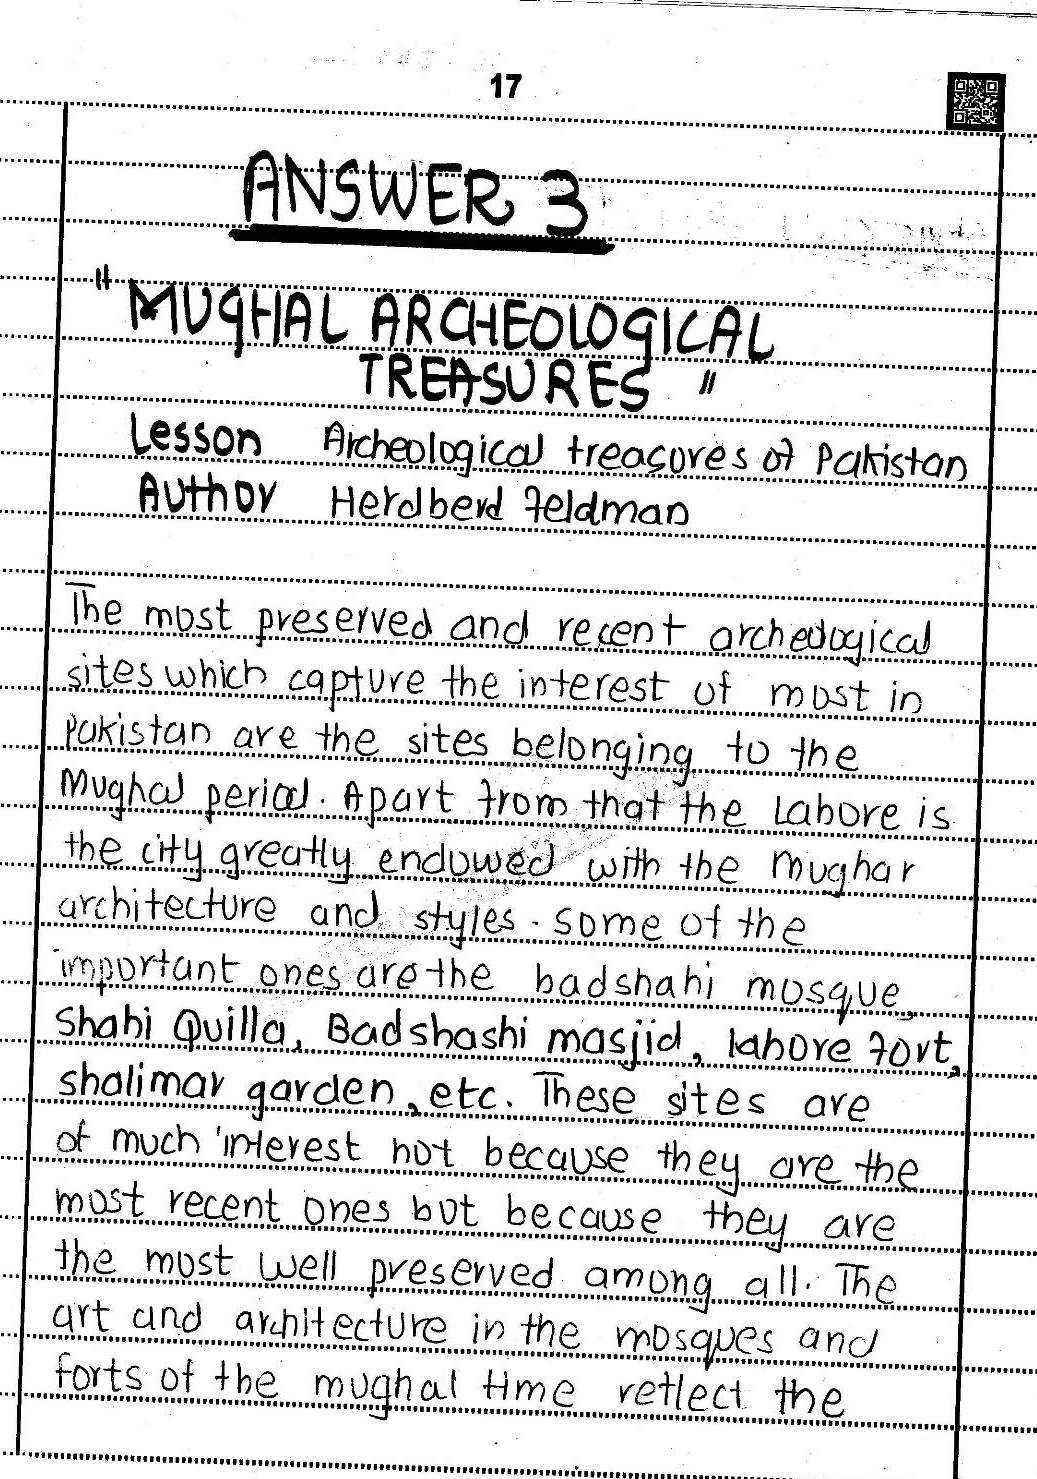 17
ANSWER 3
"MUGHAL ARCHEOLOGICAL
TREASURES"
Lesson Archeological treasures of Pakistan
Author Herdberd Feldman
The most preserved and recent archeological
sites which capture the interest of most in
Pakistan are the sites belonging to the
Mughal period. Apart from that the Lahore is
the city greatly endowed with the Mughar
architecture and styles. Some of the
important ones are the badshahi mosque,
Shahi Quilla, Badshashi masjid, lahore Fort,
shalimar garden, etc. These sites are
of much interest not because they are the
most recent ones but because they are
the most well preserved among all. The
art and architecture in the mosques and
forts of the mughal time reflect the